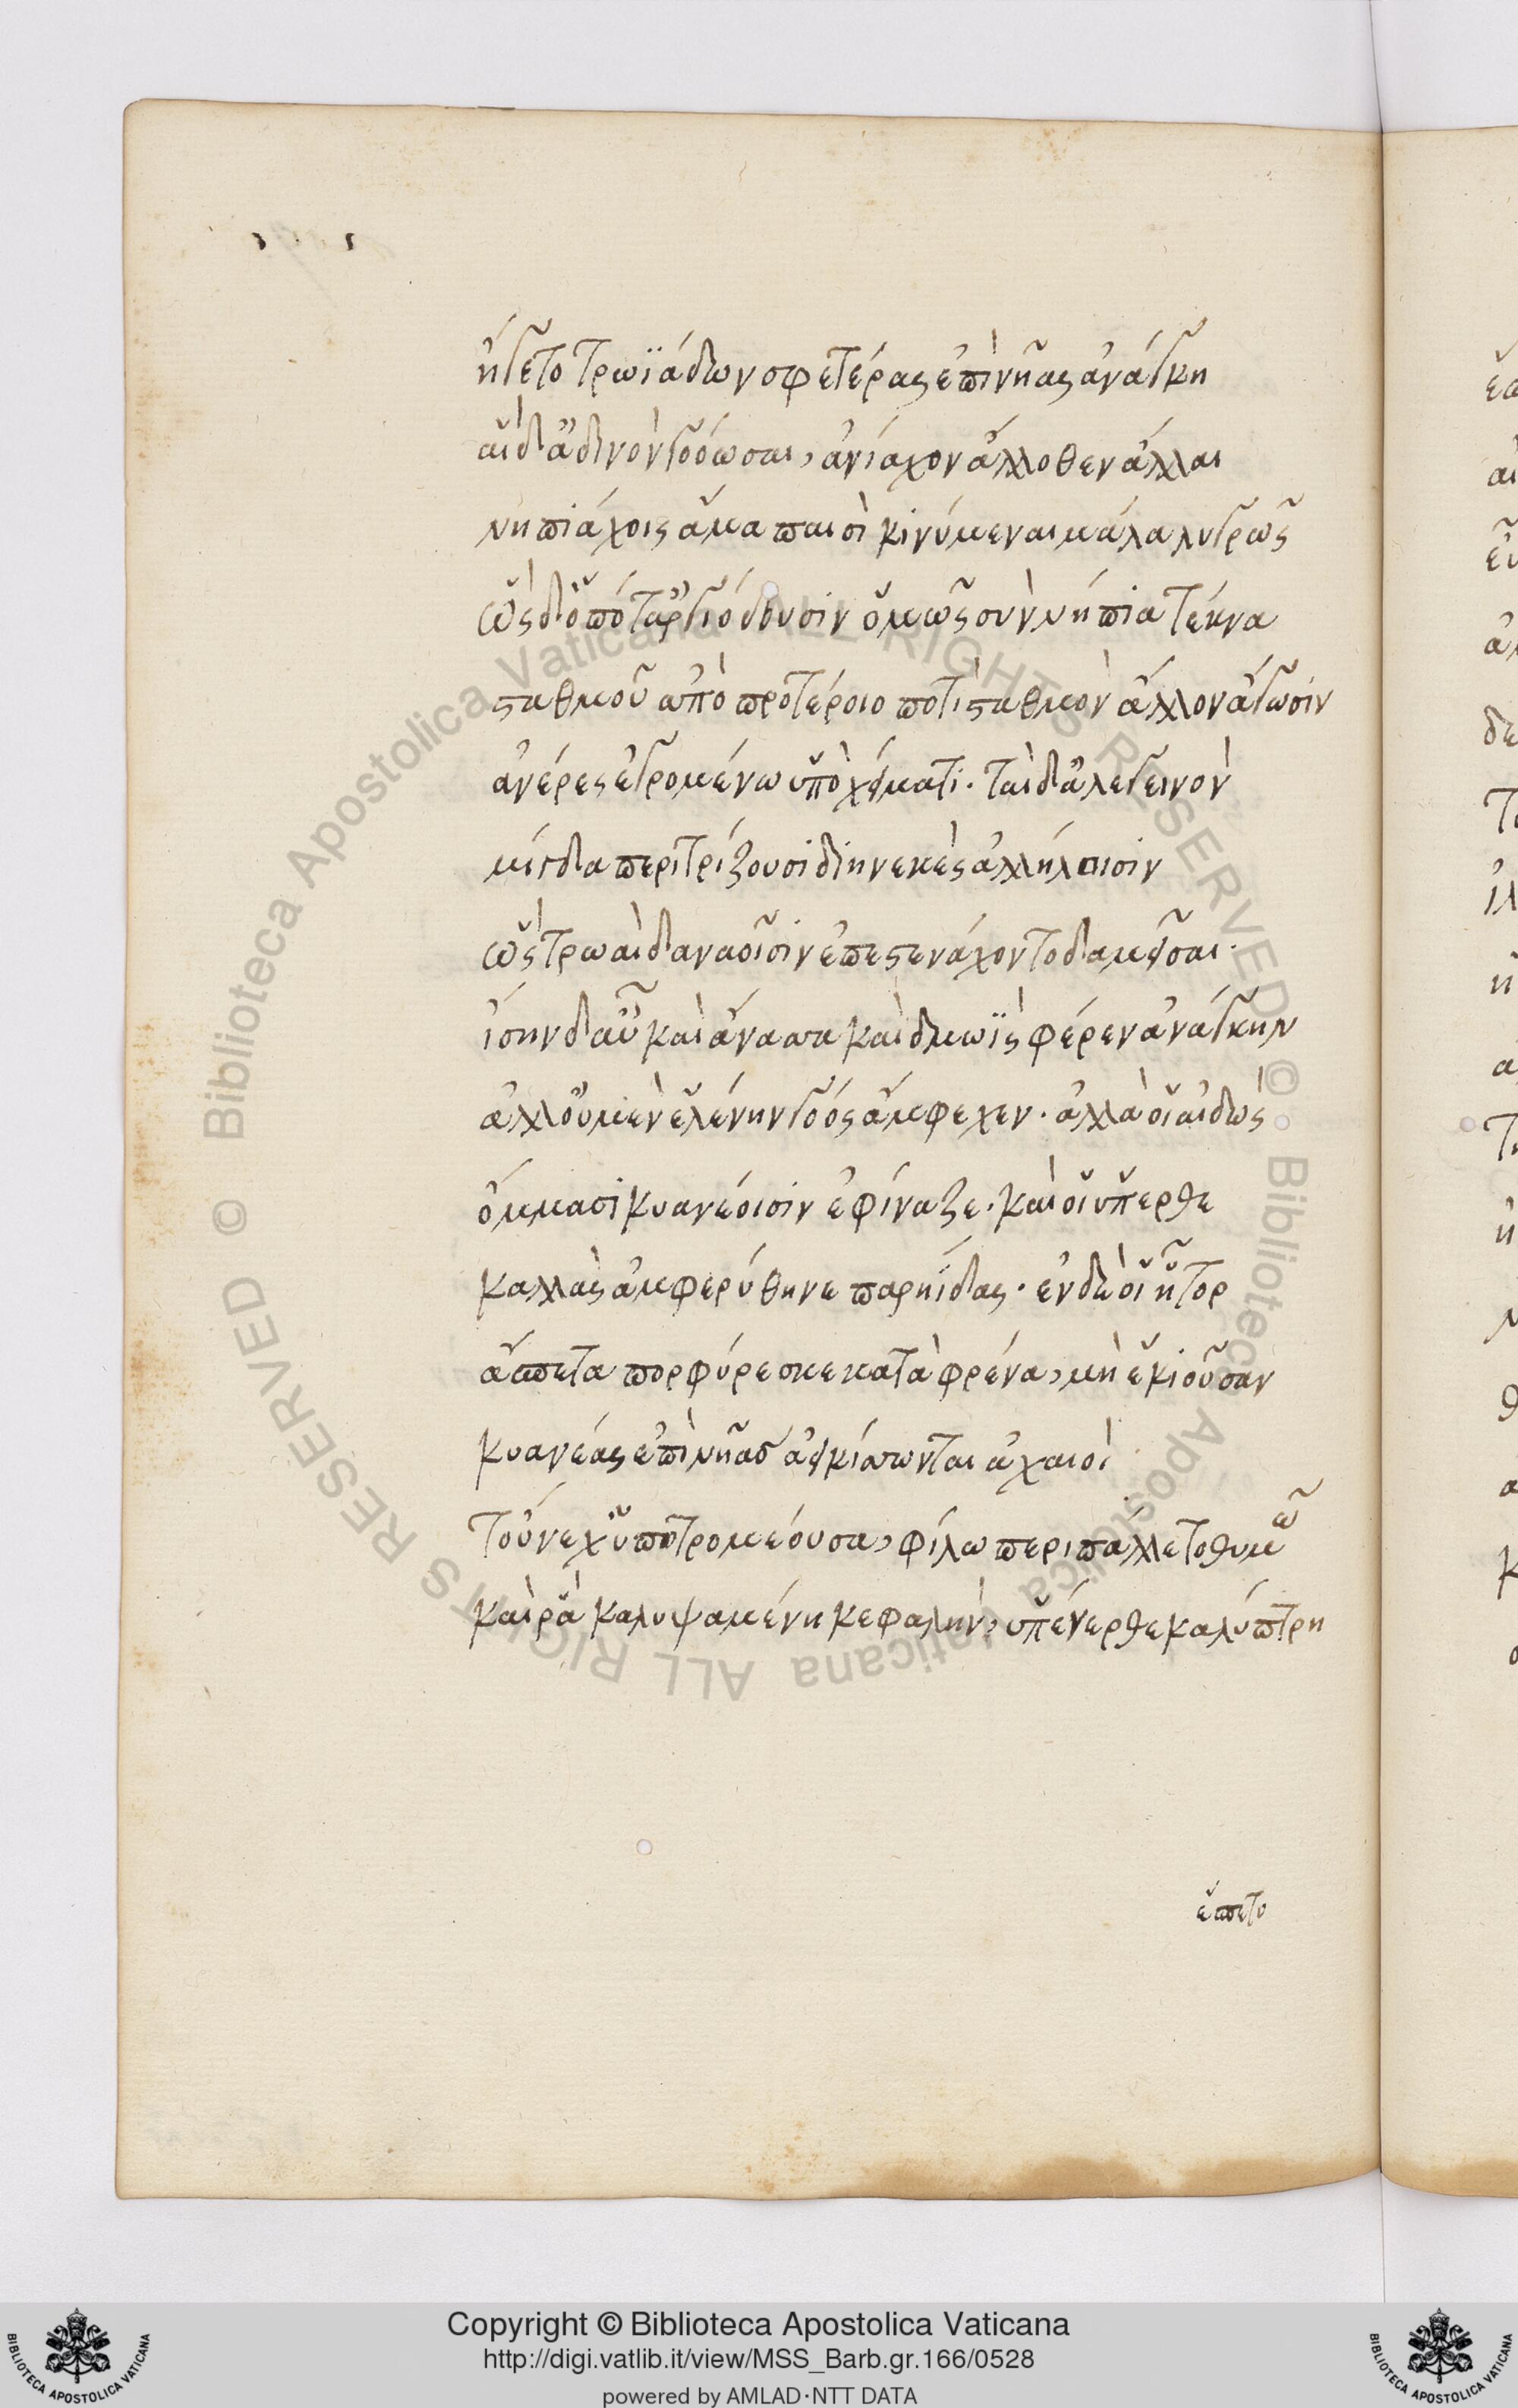 ἤγετο τρωϊάδων σφετέρας ἐπὶ νῆας ἀνάγκη
αἳ δ' ἀδινὸν γοόωσαι, ἀνίαχον ἄλλοθεν ἄλλαι
νηπιάχοις ἅμα παισὶ κινύμεναι μάλα λυγρῶς
ὡς δ' ὁπόταρ γιόδουσιν ὁμῶς σὺν νήπια τέκνα
σταθμοῦ ἀπὸ προτέροιο ποτὶ σταθμὸν ἄλλον ἄγωσιν
ἀνέρες ἐγρομένω ὑπὸ χείματι. ταὶ δ' ἀλεγεινὸν
μίγδα περιτρίζουσι διηνεκὲς ἀλλήλοισιν
ὡς τρωαὶ δαναοῖσιν ἐπεστενάχοντο δαμεῖσαι.
ἴσην δ' αὖ καὶ ἄνασσα καὶ δμωῒς φέρεν ἀνάγκην
ἀλλ' οὐ μὲν ἑλένην γόος ἄμφεχεν. ἀλλά οἱ αἰδὼς
ὄμμασι κυανέοισιν ἐφίναζε. καὶ οἱ ὕπερθε
καλλὰς ἀμφερύθηνε παρηίδας. ἐν δέ οἱ ἦτορ
ἄσπετα πορφύρεσκε κατὰ φρένα, μή ἑ κιοῦσαν
κυανέας ἐπὶ νῆας ἀεικίσσωνται ἀχαιοὶ
τοὔνεχ' ὑποτρομέουσα, φίλω περιπάλλετο θυμῶ
καί ῥα καλυψαμένη κεφαλὴν, ὑπένερθε καλύπτρη
ἕσπετο
Copyright © Biblioteca Apostolica Vaticana
http://digi.vatlib.it/view/MSS_Barb.gr.166/0528
powered by AMLAD·NTT DATA